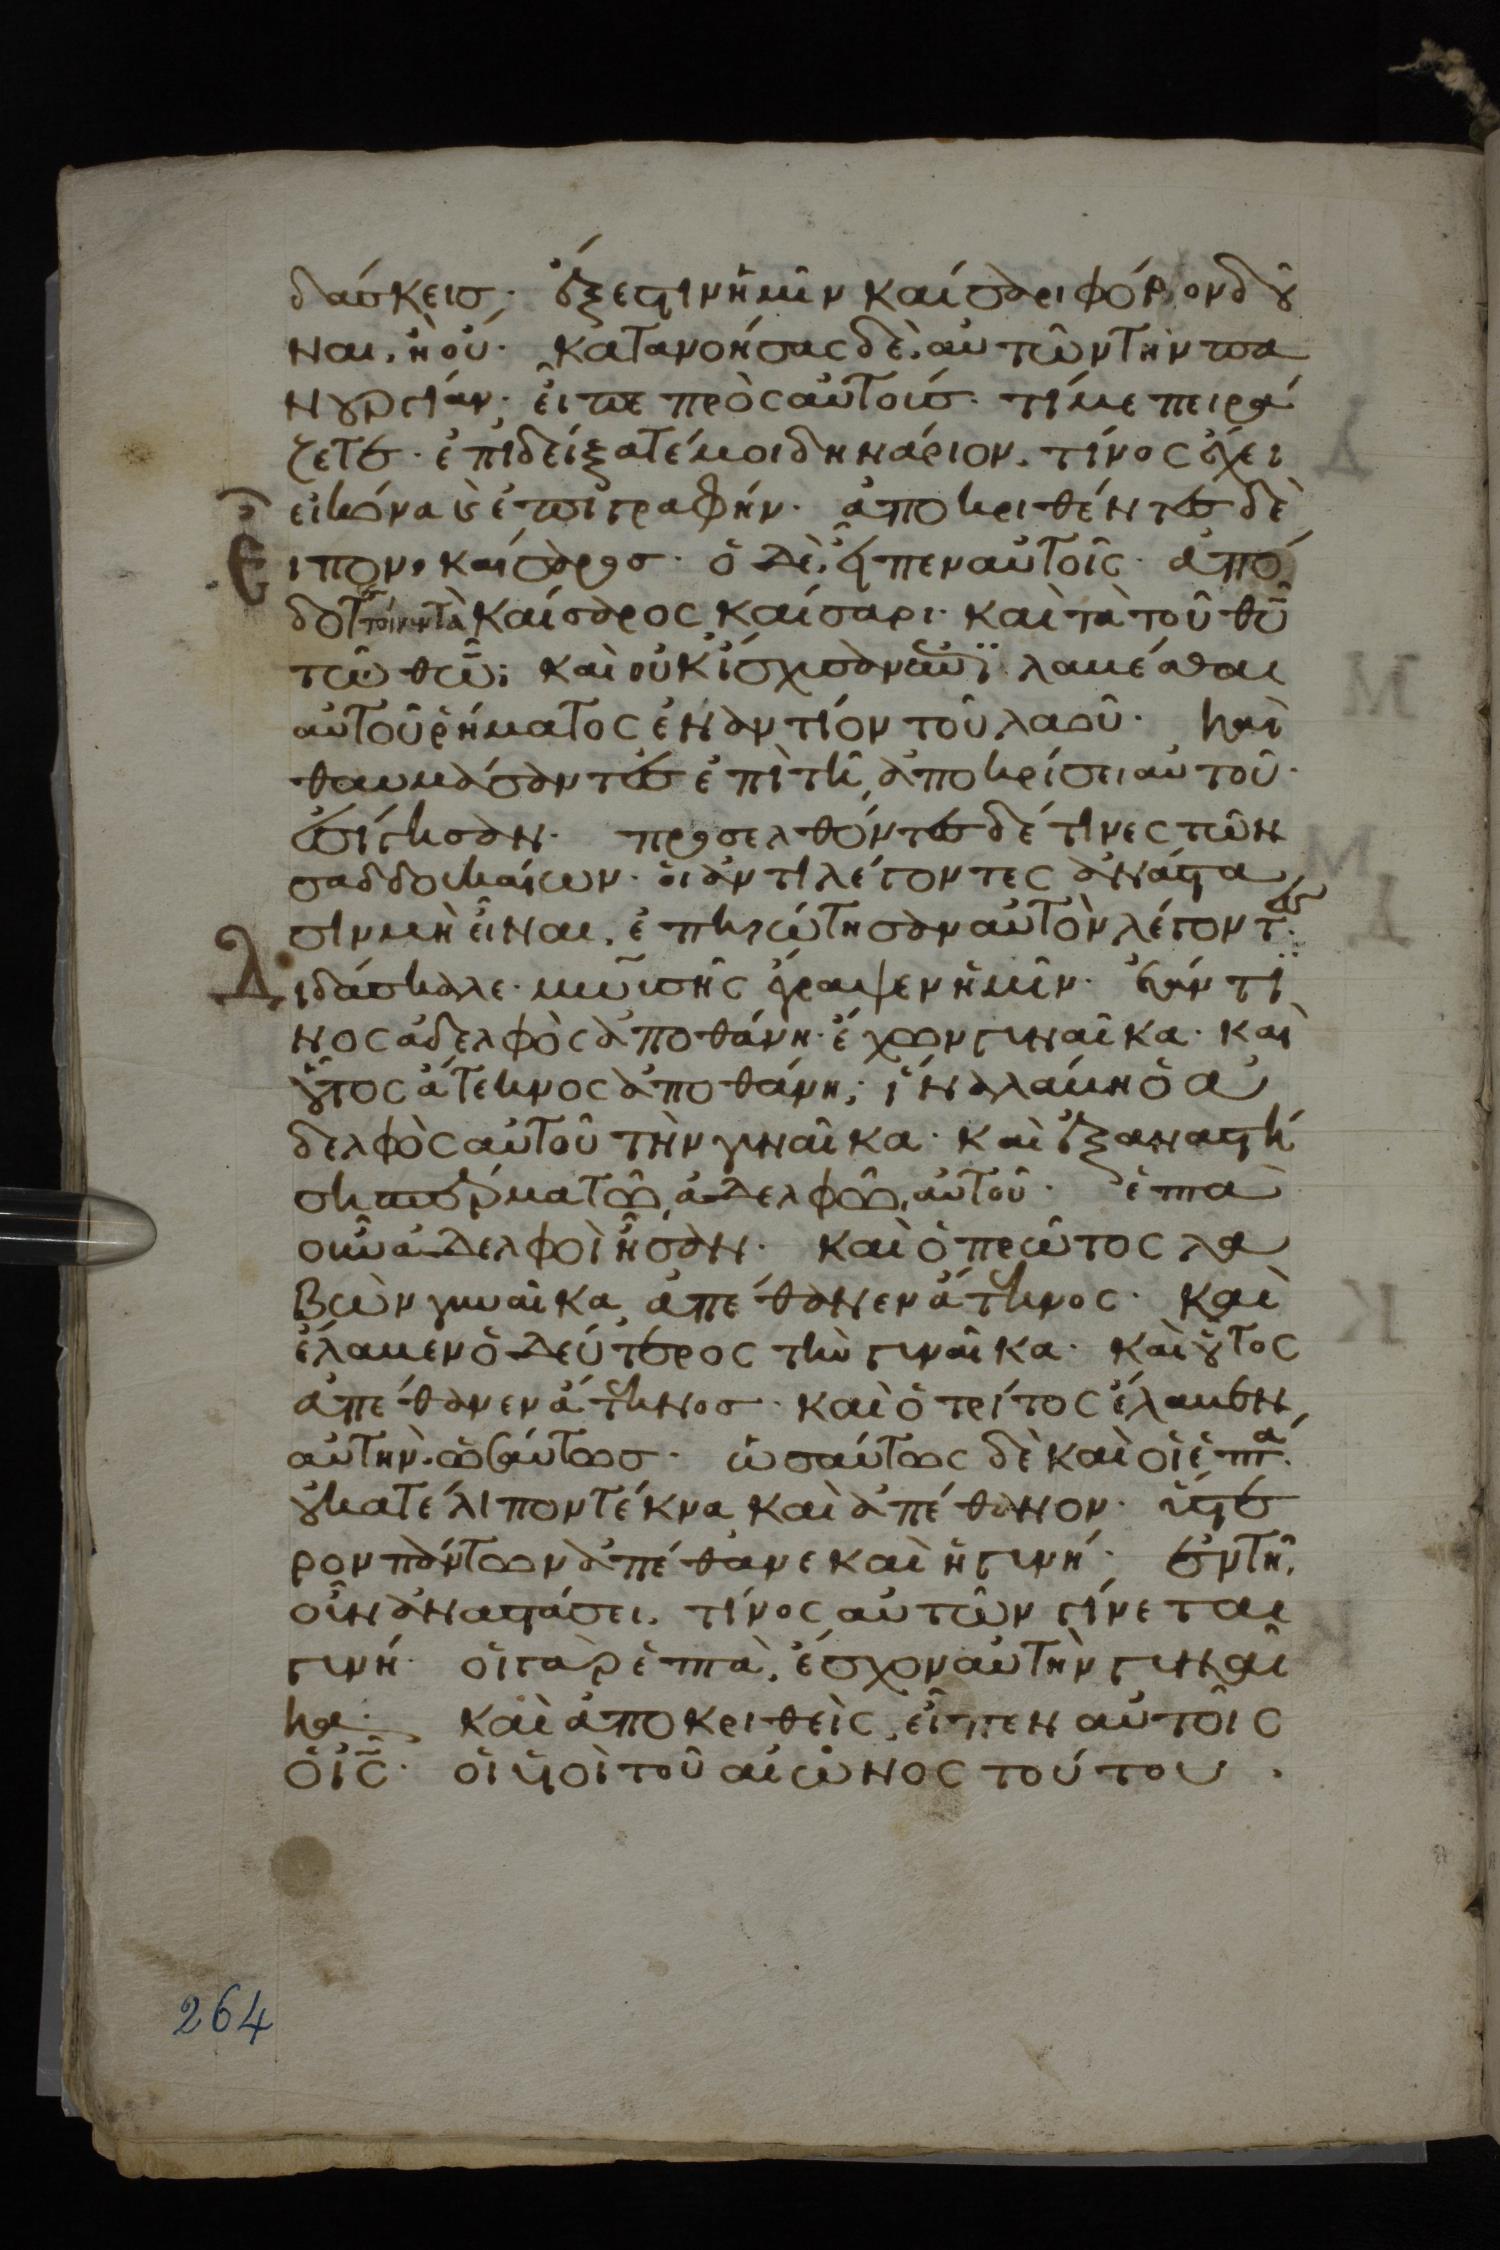 δάσκεις· ἔξεστιν ἡμῖν καίσαρι φόρον δοῦ
ναι, ἢ οὔ· κατανοήσας δὲ αὐτῶν τὴν πα
νουργίαν· εἶπε πρὸς αὐτούς· τί με πειρά
ζετε· ἐπιδείξατέ μοι δηνάριον. τίνος ἔχει
εἰκόνα κ ἐπιγραφήν· ἀποκριθέντες δὲ
εἶπον· καίσαρος· ὁ δὲ εἶπεν αὐτοῖς· ἀπό
δοτε τοίνυν τὰ καίσαρος καίσαρι· καὶ τὰ τοῦ θυ
τῶ θω· καὶ οὐκ ἴσχυσαν λαβέσθαι
αὐτοῦ ῥήματος ἐναντίον τοῦ λαοῦ· καὶ
θαυμάσαντες ἐπὶ τῆ ἀποκρίσει αὐτοῦ·
ἐσίγησαν· προσελθόντες δέ τινες τῶν
σαδδουκαίων· οἱ ἀντιλέγοντες ἀνάστα
σιν μὴ εἶναι, ἐπηρώτησαν αὐτὸν λέγοντες·
Διδάσκαλε· μωυσῆς ἔγραψεν ἡμῖν· ἐάν τι
νος ἀδελφὸς ἀποθάνη· ἔχων γυναῖκα· καὶ
οὗτος ἄτεκνος ἀποθάνη· ἵνα λάβη ὁ ἀ
δελφὸς αὐτοῦ τὴν γυναῖκα· καὶ ἐξαναστή
ση σπέρμα τῶ ἀδελφῶ αὐτοῦ· ἑπτὰ
οὖν ἀδελφοὶ ἦσαν· καὶ ὁ πρῶτος λα
βὼν γυναῖκα ἀπέθανεν ἄτεκνος· καὶ
ἔλαβεν ὁ δεύτερος τὴν γυναῖκα· καὶ οὗτος
ἀπέθανεν ἄτεκνος· καὶ ὁ τρίτος ἔλαβεν
αὐτὴν ὡσαύτως· ὡσαύτως δὲ καὶ οἱ ἑπτά·
οὐ κατέλιπον τέκνα καὶ ἀπέθανον· ὕστε
ρον πάντων ἀπέθανε καὶ ἡ γυνή· ἐν τῆ
οὖν ἀναστάσει, τίνος αὐτῶν γίνεται
γυνή· οἱ γὰρ ἑπτὰ, ἔσχον αὐτὴν γυναῖ
κα· καὶ ἀποκριθεὶς εἶπεν αὐτοῖς
ὁ ις· οἱ υἱοὶ τοῦ αἰῶνος τούτου·
264